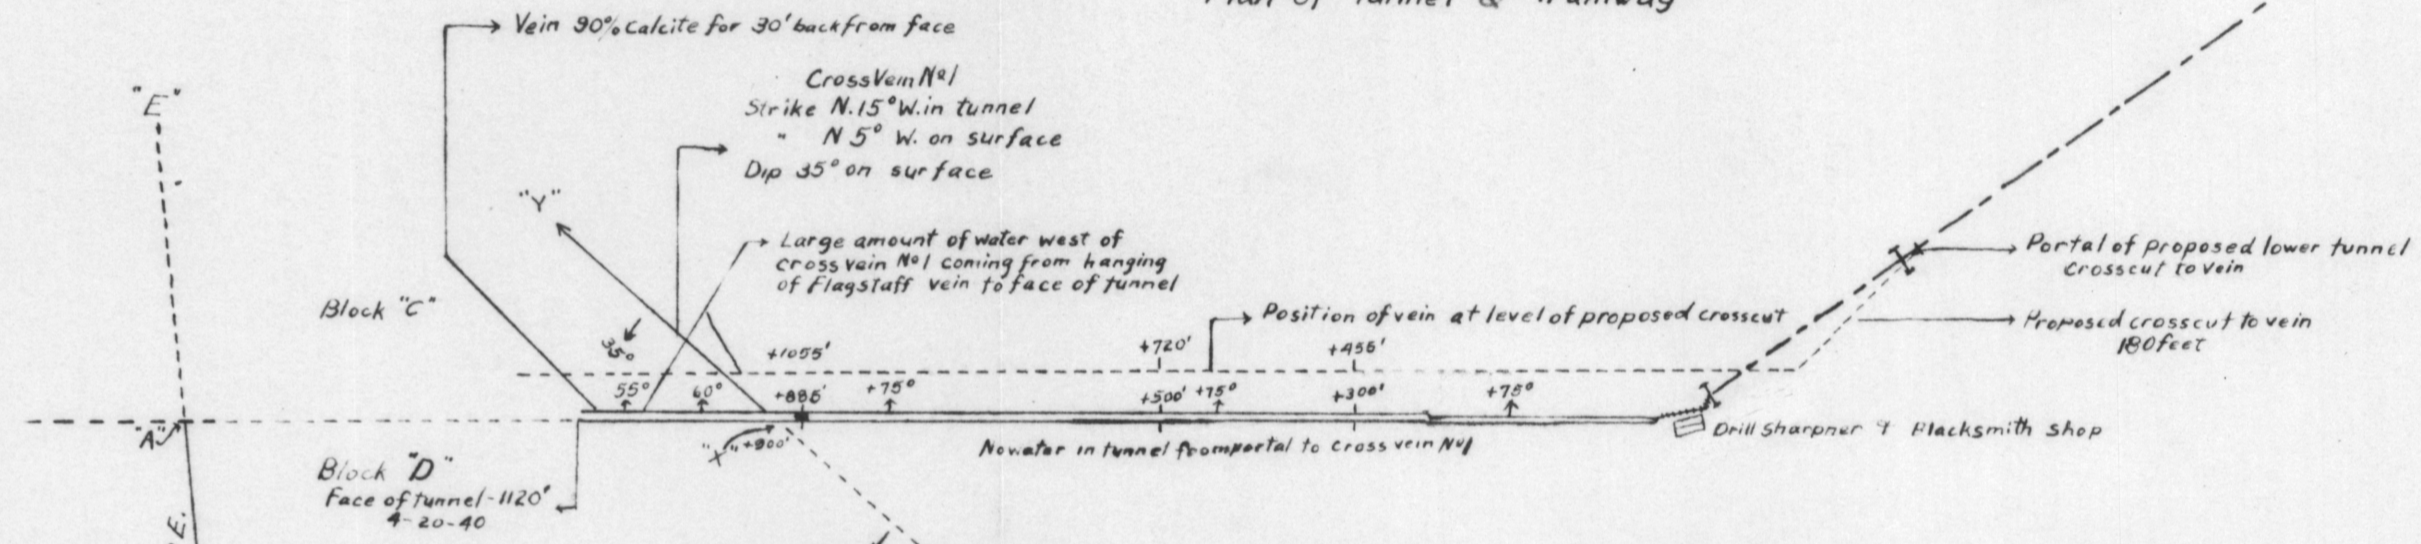 Plan of Tunnel & Tramway
Vein 90% Calcite for 30' back from face
Cross Vein No1
Strike N.15° W. in tunnel
" N 5° W. on surface
Dip 35° on surface
"E"
"Y"
Large amount of water west of
cross vein No1 coming from hanging
of Flagstaff vein to face of tunnel
Portal of proposed lower tunnel
Crosscut to vein
Block "C"
Position of vein at level of proposed crosscut
Proposed crosscut to vein
180 feet
35°
+1055'
+720'
+455'
55°
60°
+885'
+75°
+500'
+75°
+300'
+75°
"A"
"X" +900'
No water in tunnel from portal to Cross vein No1
Drill sharpner & Blacksmith shop
Block "D"
Face of tunnel - 1120'
4-20-40
E.